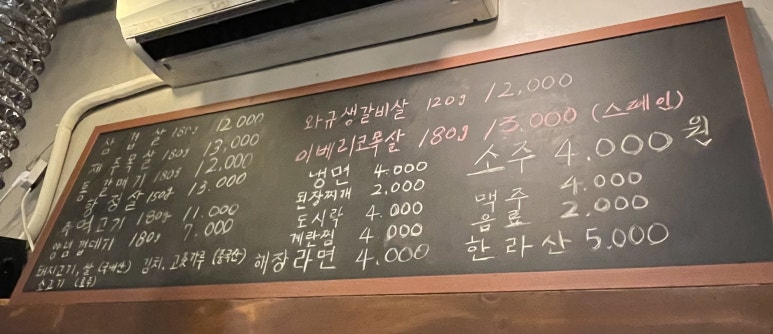 삼겹살 180g 12,000
제주목살 180g 13,000
통갈매기 180g 12,000
항정살 150g 13.000
추억고기 180g 11.000
양념껍데기 180g 7.000
돼지고기, 쌀 (국내산) 김치, 고춧가루 (중국산)
소고기 (호주)
와규생갈비살 120g 12,000
이베리코목살 180g 13,000 (스페인)
냉면 4.000
된장찌개 2,000
도시락 4.000
계란찜 4 000
해장라면 4.000
소주 4.000원
맥주 4.000
음료 2.000
한라산 5.000